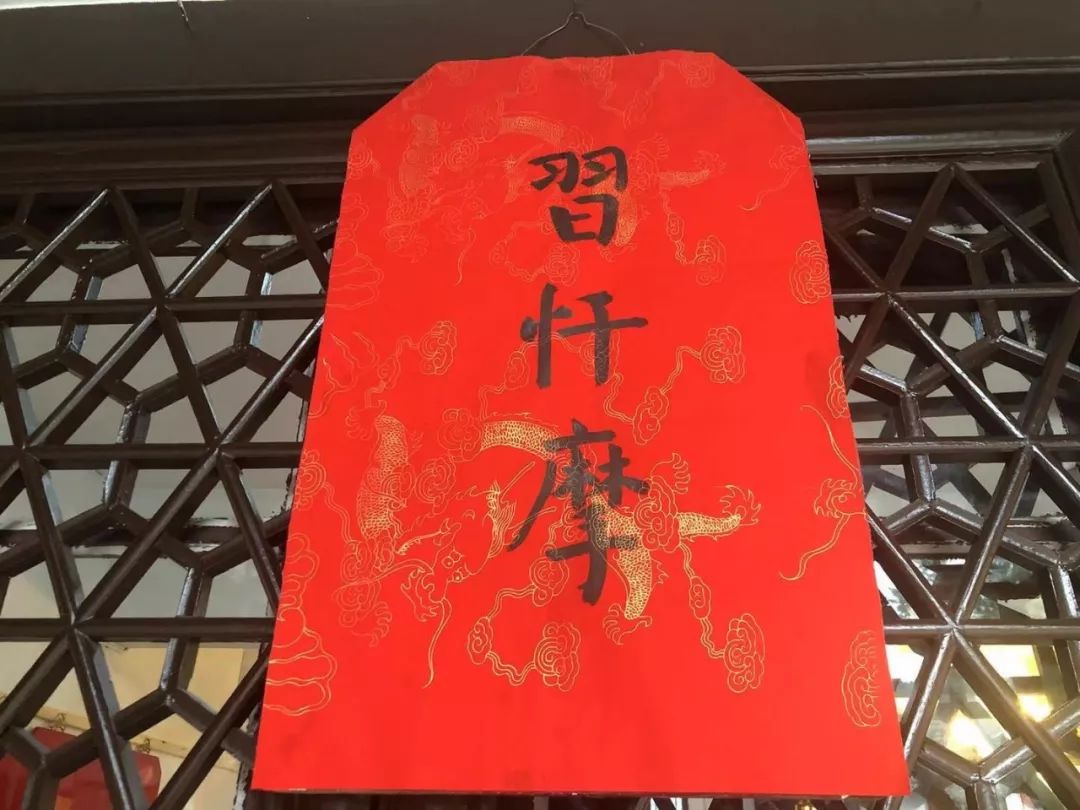 習
忏
摩